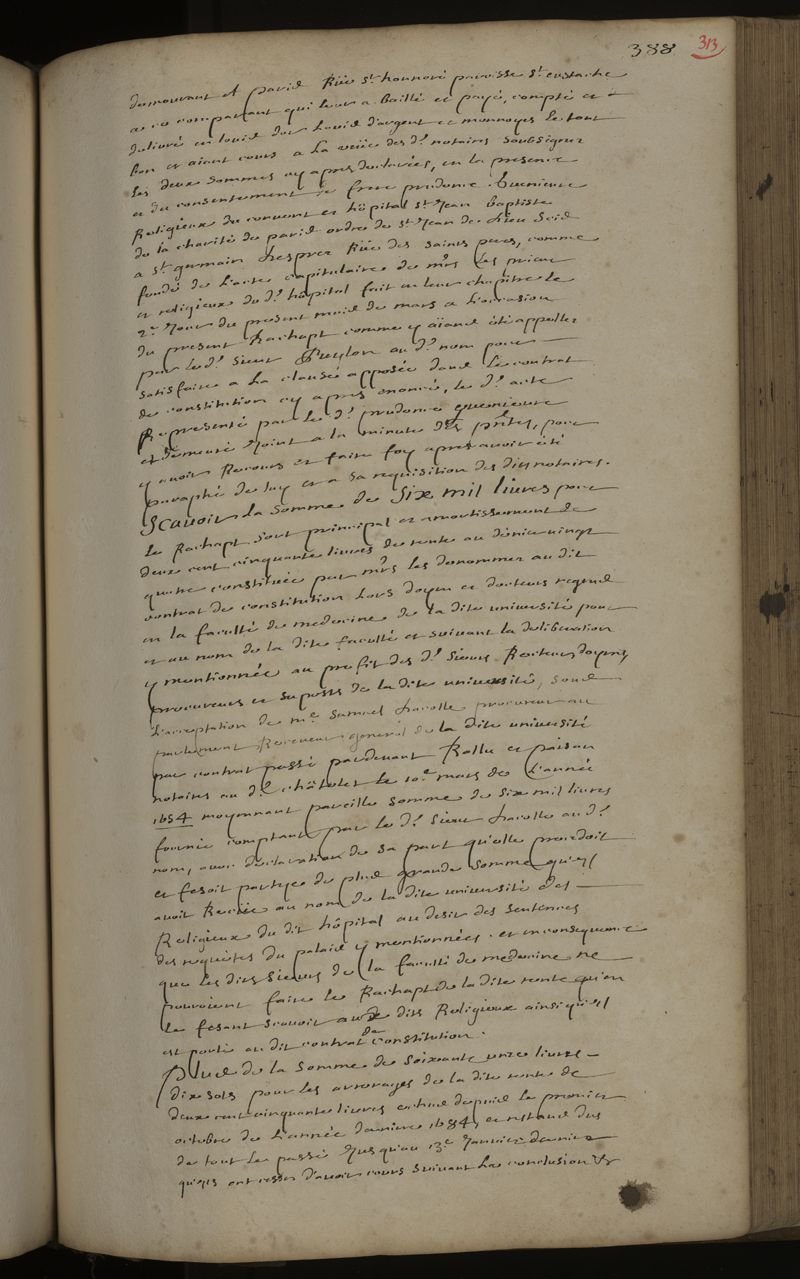 388 313
demeurant A paris Rüe st. honnoré paroisse st. eustache
a ce comparant qui leur a Baillé et payé, compté et
delivré en louis dor Louis d'argent et monnoyes le tout
bon et aiant cours a La veüe des d. notaires soubsignez
les deux sommes cy apres declarées, en la presence
et du consentement de frere prudence Guenieure
Religieux du couvent et hôpital st. Jean Baptiste
de la charité de paris ordre de st. Jean de Dieu scis
a st. germain desprez Rüe des saints peres, comme
fondé de l'acte capitulaire de mrs. Les prieur
et religieux du d. hôpital fait en leur chapitre le
2e. Jour du present mois de mars a L'occasion
du present Rachapt comme y aïant été appellez
par le d. sieur au d. nom pour
satisfaire a La clause apposée dans Le contrat
de constitution cy apres enoncé, le d. acte
Representé par le d. prudence Guenieure
et demeuré Joint a la minute des ptes, pour
y avoir Recours et faire foy apres avoir été
paraphé de luy et a sa requisition des dits notaires.
Scavoir la somme de Six mil livres pour
le Rachapt sort principal et amortissement de
deux cent cinquante livres de rente au denier vingt
quatre constituée par mrs les denommez au dit
contrat de constitution Lors doyen et docteurs regens
en la faculté de medecine de la dite université pour
et au nom de la dite faculté et suivant la deliberation
y mentionnée au profit des d. Sieurs Recteur, doyens,
procureurs et suposts de la dite université, sous
L'acceptation de me Samuel Dacolle procureur au
parlement Receveur general de la dite université
par contrat passé pardevant Rallu et païsan
notaires au d. châtelet le 10e. mars de L'année
1654 moyennant pareille somme de six mil livres
fournie comptant par le d. sieur Dacolle au d.
nom, avec declaration de sa part qu'elle procedoit
et fesoit partye de plus grande somme qu'il
avoit Receüe au nom de la dite université des
Religieux du dit hôpital au desir des sentences
des requêtes du palais y mentionnées. et en consequence
que les dits Sieurs de la faculté de medecine ne
pouvoient faire le Rachapt de la dite rente qu'en
le fesant scavoir aux dits Religieux ainsi qu'il
est porté au dit contrat de constitution.
Plus de la somme de soixante onze livres
dix sols pour les arrerages de la dite rente de
deux cent cinquante livres echus depuis le premier
octobre de L'année derniere 1684, et restans dus
de tout le passé Jusqu'au 13e. Janvier dernier
qu'ils ont cessé d'avoir cours suivant La conclusion